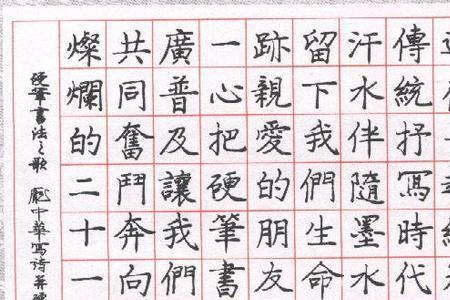 傳統抒寫時代
汗水伴隨墨水
留下我們生命
跡親愛的朋友
一心把硬筆書
廣普及讓我們
共同奮鬥奔向
燦爛的二十一
硬筆書法之歌 龐中華寫詩并